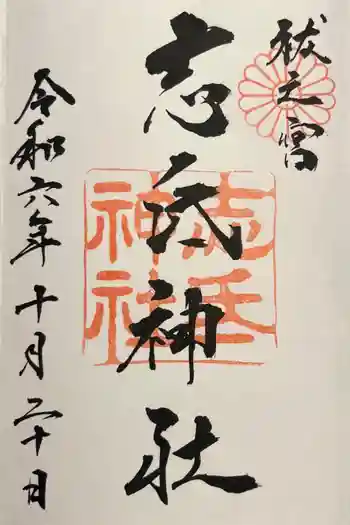 祓之宮
志氐神社
志氐神社
令和六年十月二十日